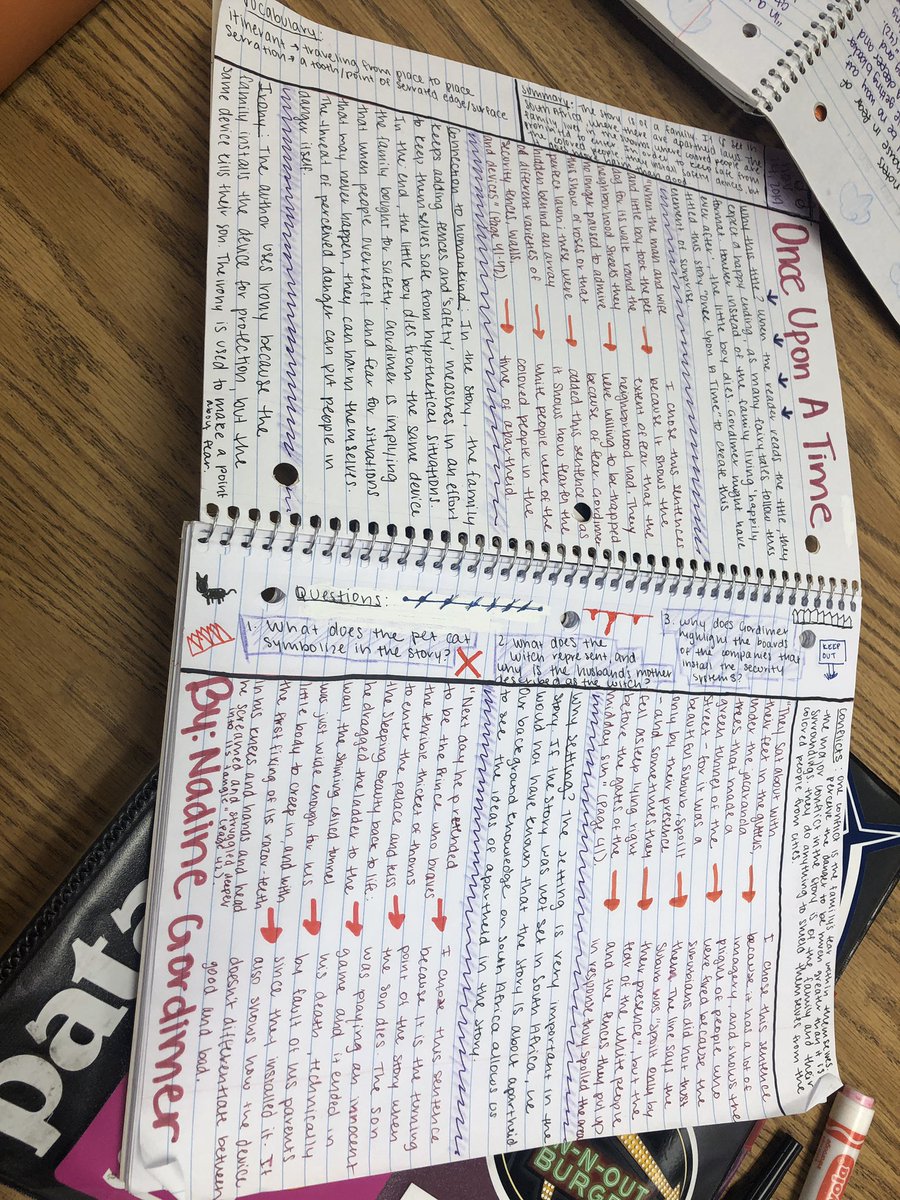 Once Upon A Time
Vocabulary:
itinerant → traveling from place to place
serration → a tooth/point of serrated edge/surface
Summary: The story is of a family. It is set in
South Africa where there are apartheid days. The
family lives in
Why this title? When the reader reads the title, they
expect a happy ending, as many fairytales follow this
format. However instead of the family living "happily
ever after", the little boy dies. Gordimer might have
titled this story "Once Upon A Time" to create this
element of surprise.
"When the man and wife
and little boy took the pet
dog for its walk round the
neighborhood streets they
no longer paused to admire
this show of roses or that
perfect lawn; these were
hidden behind an array
of different varieties of
security fences, walls
and devices" (Page 41-42)
I chose this sentences
because it shows the
extent of fear that the
neighborhood had. They
were willing to be trapped
because of fear. Gordimer
added this sentence as
it shows how fearful the
white people were of the
colored people in the
time of apartheid
Connection to humankind: In the story, the family
keeps adding fences and safety measures in an effort
to keep themselves safe from hypothetical situations.
In the end, the little boy dies from the same device
the family bought for safety. Gordimer is implying
that when people overreact and fear for situations
that may never happen, they can harm themselves.
The threat of perceived danger can put people in
danger itself.
Irony: The author uses irony because the
family installs the device for protection, but the
same device kills their son. The irony is used to make a point
about fear.
Questions:
1. What does the pet cat
symbolize in the story?
2. What does the
witch represent, and
why is the husbands mother
described as the witch?
3. Why does Gordimer
highlight the boards
of the companies that
install the security
systems?
KEEP
OUT
Conflicts: One conflict is the family's fear within themselves.
perceive the danger to be much greater than it is
the major conflict in the story is of the family and their
surroundings. They do anything to shield themselves from the
colored people from cities.
They sat about with
their feet in the gutters,
under the jacaranda
trees that made a
green tunnel of the
street - for it was a
beautiful suburb, spoilt
only by their presence
- and sometimes they
fell asleep lying right
before the gates in the
midday sun" (Page 41)
I chose this sentence
because it has a lot of
imagery and shows the
plight of people who
were fired because the
suburbans did not trust
them. The line says the
suburb was "spoilt only by
their presence" but the
fear of the white people
and the fences they put up
in response truly spoiled the area
Why setting? The setting is very important in the
story. If the story was not set in South Africa, we
would not have known that the story is about apartheid
Our background knowledge on South Africa allows us
to see the ideas of apartheid in the story.
"Next day he pretended
to be the Prince who braves
the terrible thicket of thorns
to enter the palace and kiss
the Sleeping Beauty back to life:
he dragged the ladder to the
wall, the shining coiled tunnel
was just wide enough for his
little body to creep in, and with
the first fixing of its razor-teeth
in his knees and hands and head
he screamed and struggled deeper
into its tangle"
I chose this sentence
because it is the turning
point of the story when
the son dies. The son
was playing an innocent
game and it ended in
his death, technically
by fault of his parents
since they installed it. It
also shows how the device
doesn't differentiate between
good and bad.
By: Nadine Gordimer
pata
IN-N-OUT
BURGER